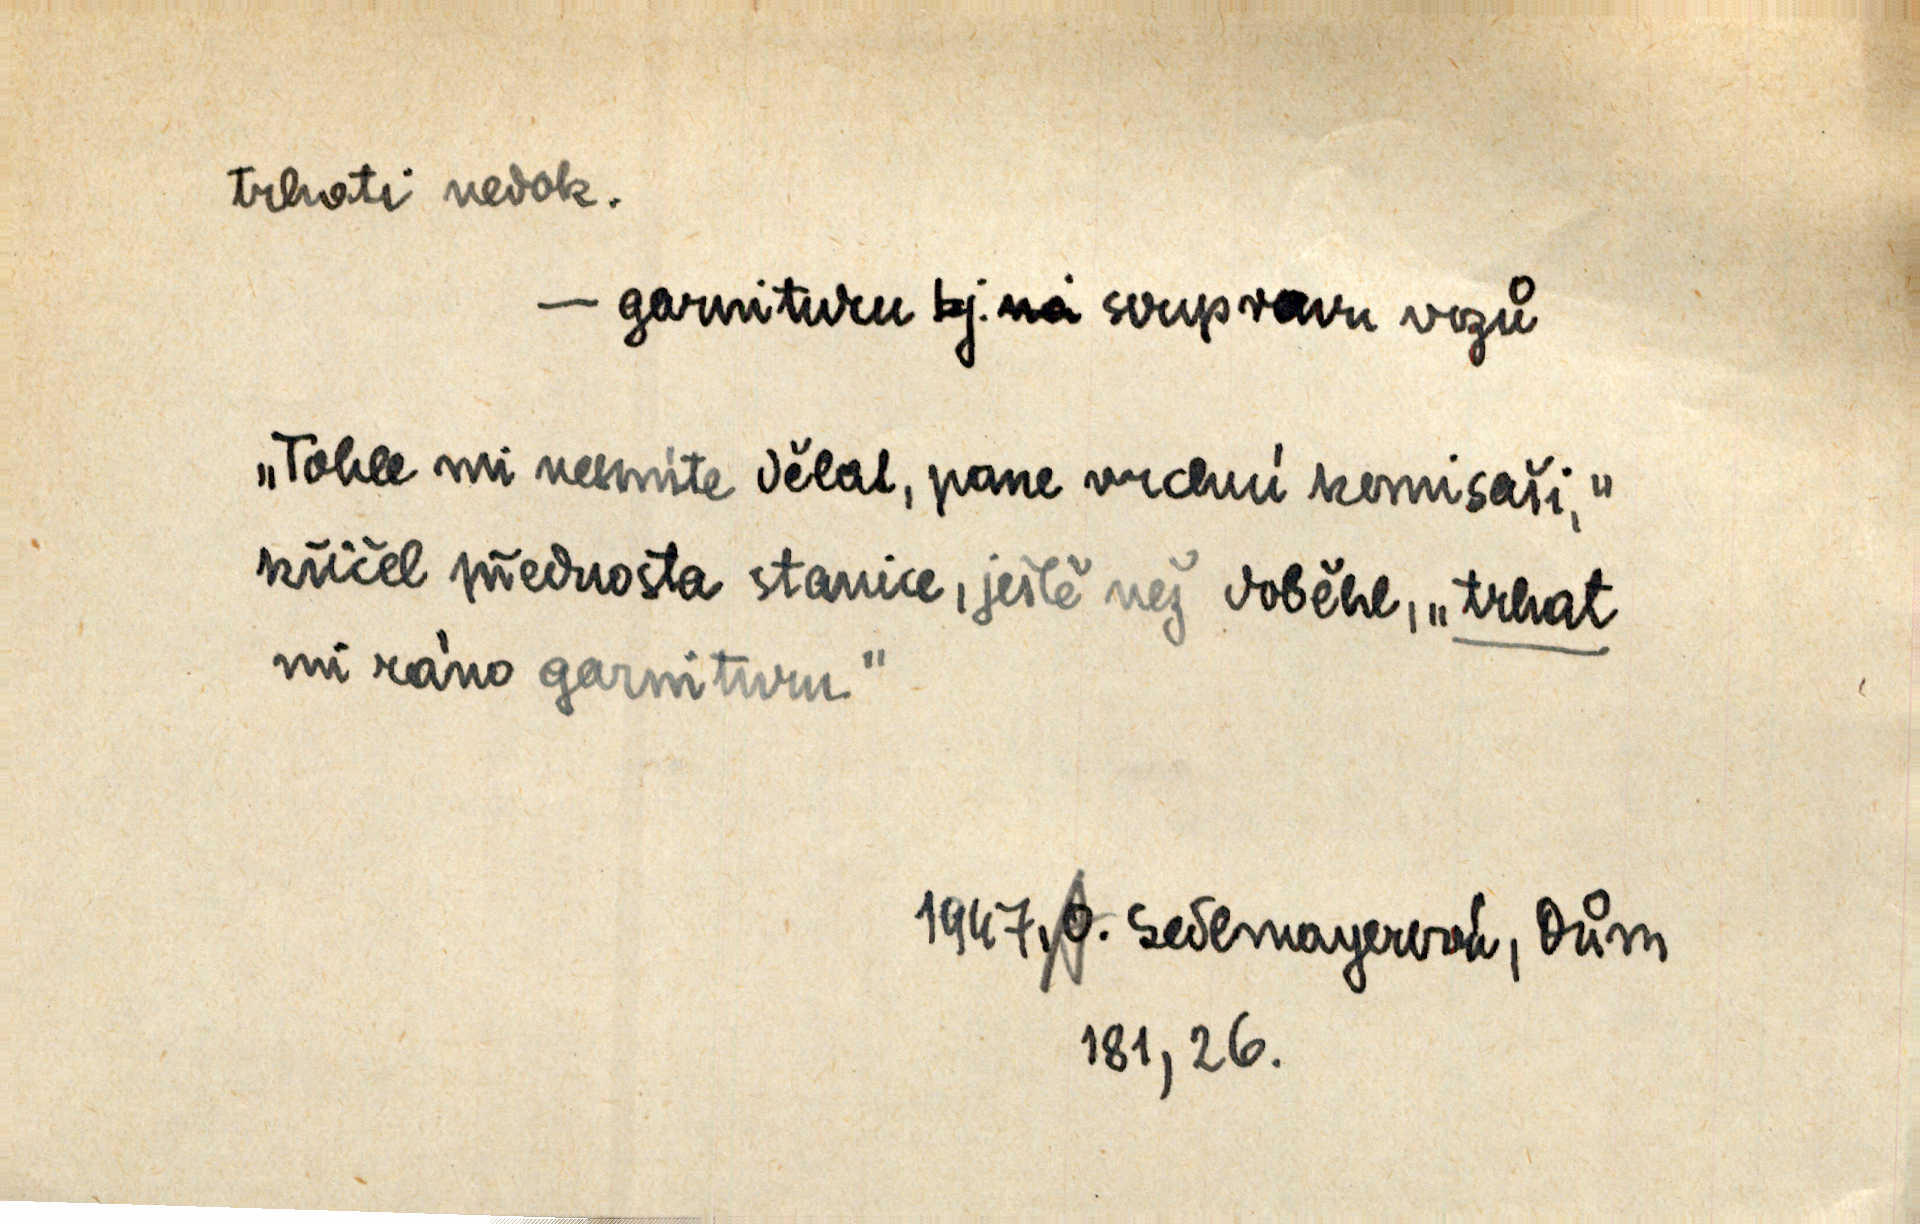 trhati nedok.
— garnituru tj. soupravu vozů
„Tohle mi nesmíte dělat, pane vrchní komisaři,"
křičel přednosta stanice, ještě než doběhl, „trhat
mi ráno garnituru"
1947, Sedlmayerová, Dům
181, 26.